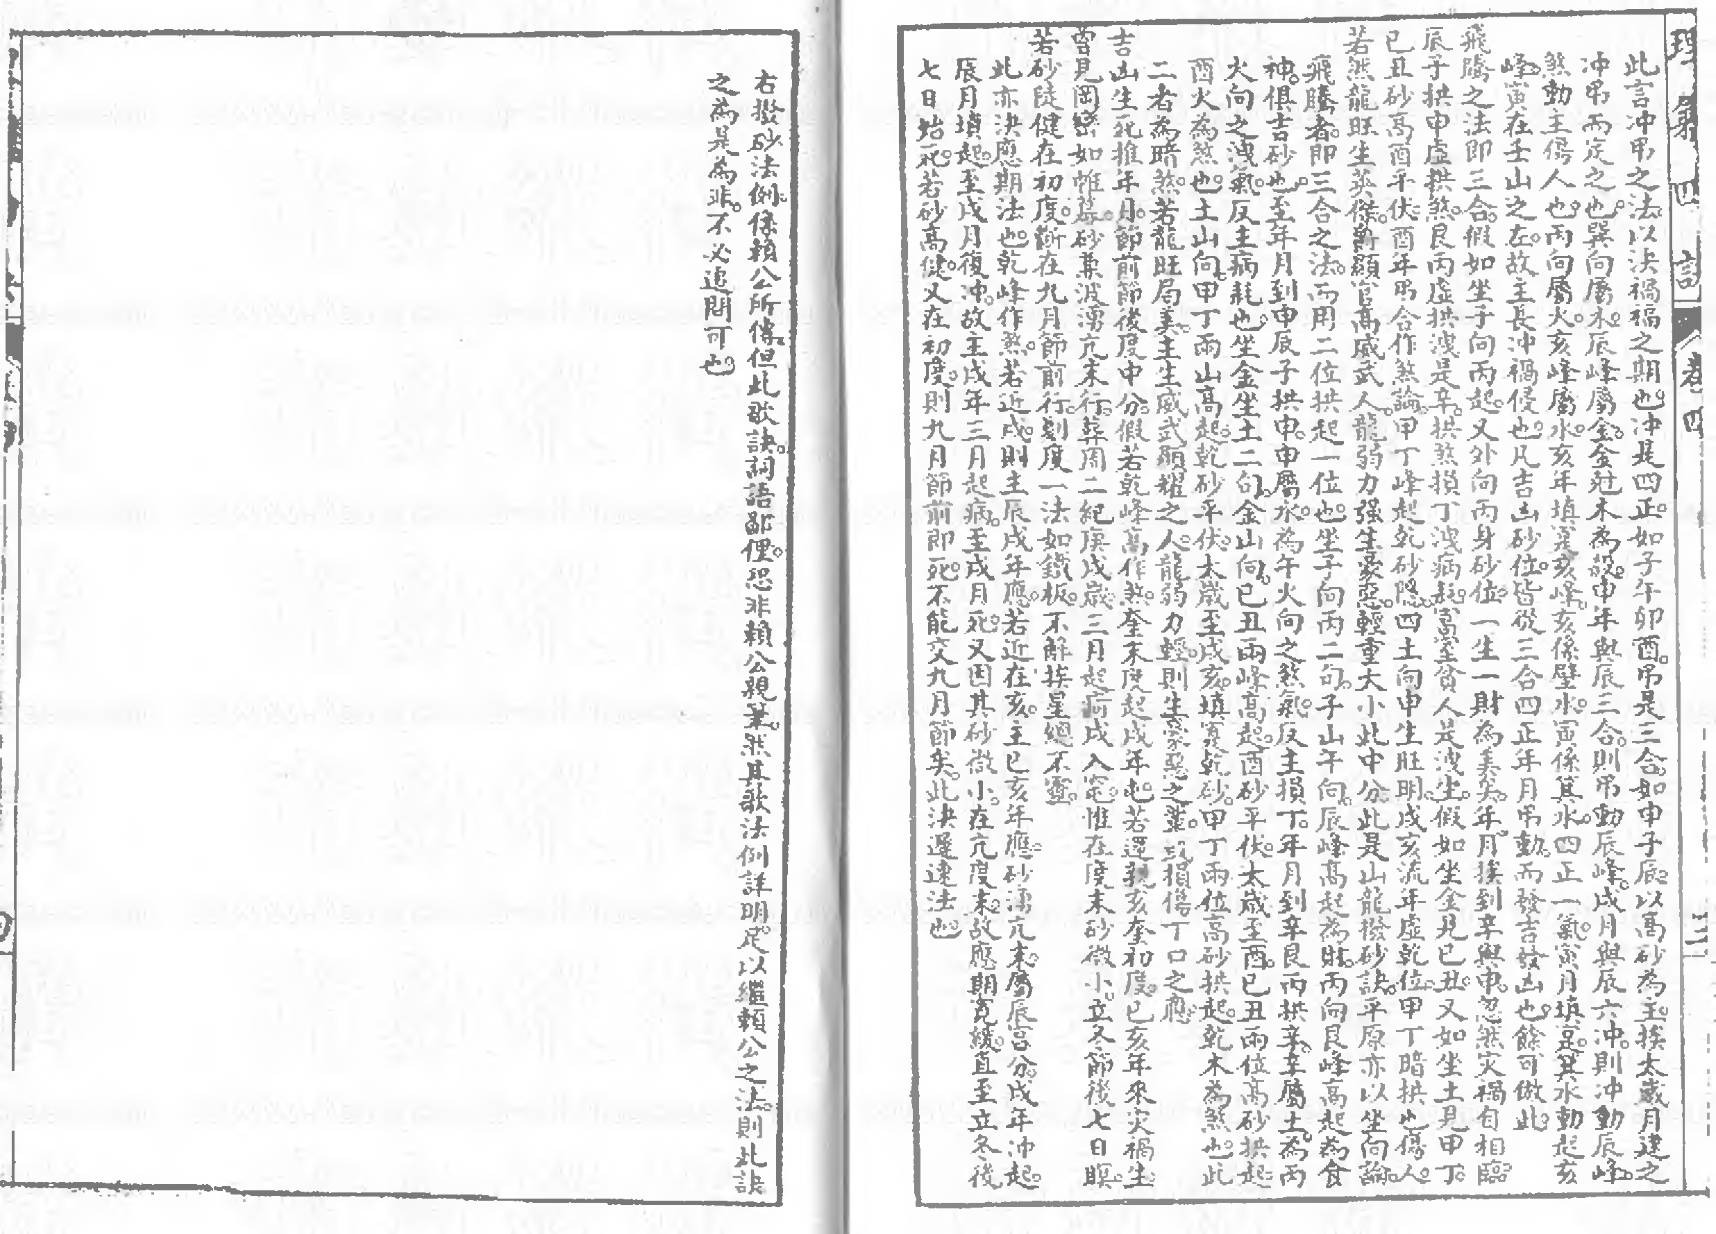 理氣四訣 卷四
此言冲吊之法以決禍福之期也冲是四正如子午卯酉吊是三合如申子辰以高砂為主挨太歲月建之
冲吊而定之也巽向屬木辰峰屬金金尅木為殺申年與辰三合則吊動辰峰戌月與辰六冲則冲動辰峰
煞動主傷人也丙向屬火亥峰屬水亥年填寔亥峰亥係壁水寅係箕水四正一氣寅月填寔箕水動起亥
峰寅在壬山之左故主長冲禍侵也凡吉凶砂位皆從三合四正年月吊動而發吉發凶也餘可倣此
飛騰之法即三合假如坐子向丙起又外向丙身砂位一生一財為美矣年月挨到辛與申忽然灾禍自相臨
辰子拱申虛拱煞艮丙虛拱洩是辛拱煞損丁洩病耗高室貧人是洩坐假如坐金見巳丑又如坐土見甲丁
已丑砂高酉平伏酉年吊合作煞論甲丁峰起乾砂隱四土向甲生旺明戌亥流年虛乾位甲丁暗拱也傷人
若然龍旺生英傑為顯官高威武人龍弱力强生豪惡輕重大小此中分此是山龍撥砂訣平原亦以坐向論
飛騰者即三合之法而用二位拱起一位也坐子向丙二句子山午向辰峰高起為財丙向艮峰高起為食
神俱吉砂也至年月到申辰子拱申申屬水為午火向之煞氣反主損丁年月到辛艮丙拱辛辛屬土為丙
火向之洩氣反主病耗也坐金坐土二句金山向巳丑兩峰高起酉砂平伏太歲至酉巳丑兩位高砂拱起
酉火為煞也土山向甲丁兩山高起乾砂平伏太歲至戌亥填寔乾砂甲丁兩位高砂拱起乾木為煞也此
二者為暗煞若龍旺局美主生威武顯耀之人龍弱力輕則生豪惡之輩或損傷丁口之應
吉山生死推年月節前節後度中分假若乾峰高作煞奎末度起戌年屯若還親亥奎初度巳亥年來灾禍生
曾見岡巒如帷幕砂兼波湧亢末行葬周二紀庚戌歲三月起病戌入冥惟在度末砂微小立冬節後七日瞑
若砂陡健在初度斷在九月節前行刻度一法如鐵板不解挨星總不靈
此亦決應期法也乾峰作煞若近戌則主辰戌年應若近在亥主巳亥年應砂湧亢末屬辰宮分戌年冲起
辰月填起至戌月復冲故主戌年三月起病至戌月死又因其砂微小在亢度末故應期寬緩直至立冬後
七日始死若砂高健又在初度則九月節前即死不能交九月節矣此決遲速法也
右撥砂法例係賴公所傳但此歌訣詞語鄙俚恐非賴公親筆然其歌法例詳明足以繼賴公之法則此訣
之為是為非不必追問可也